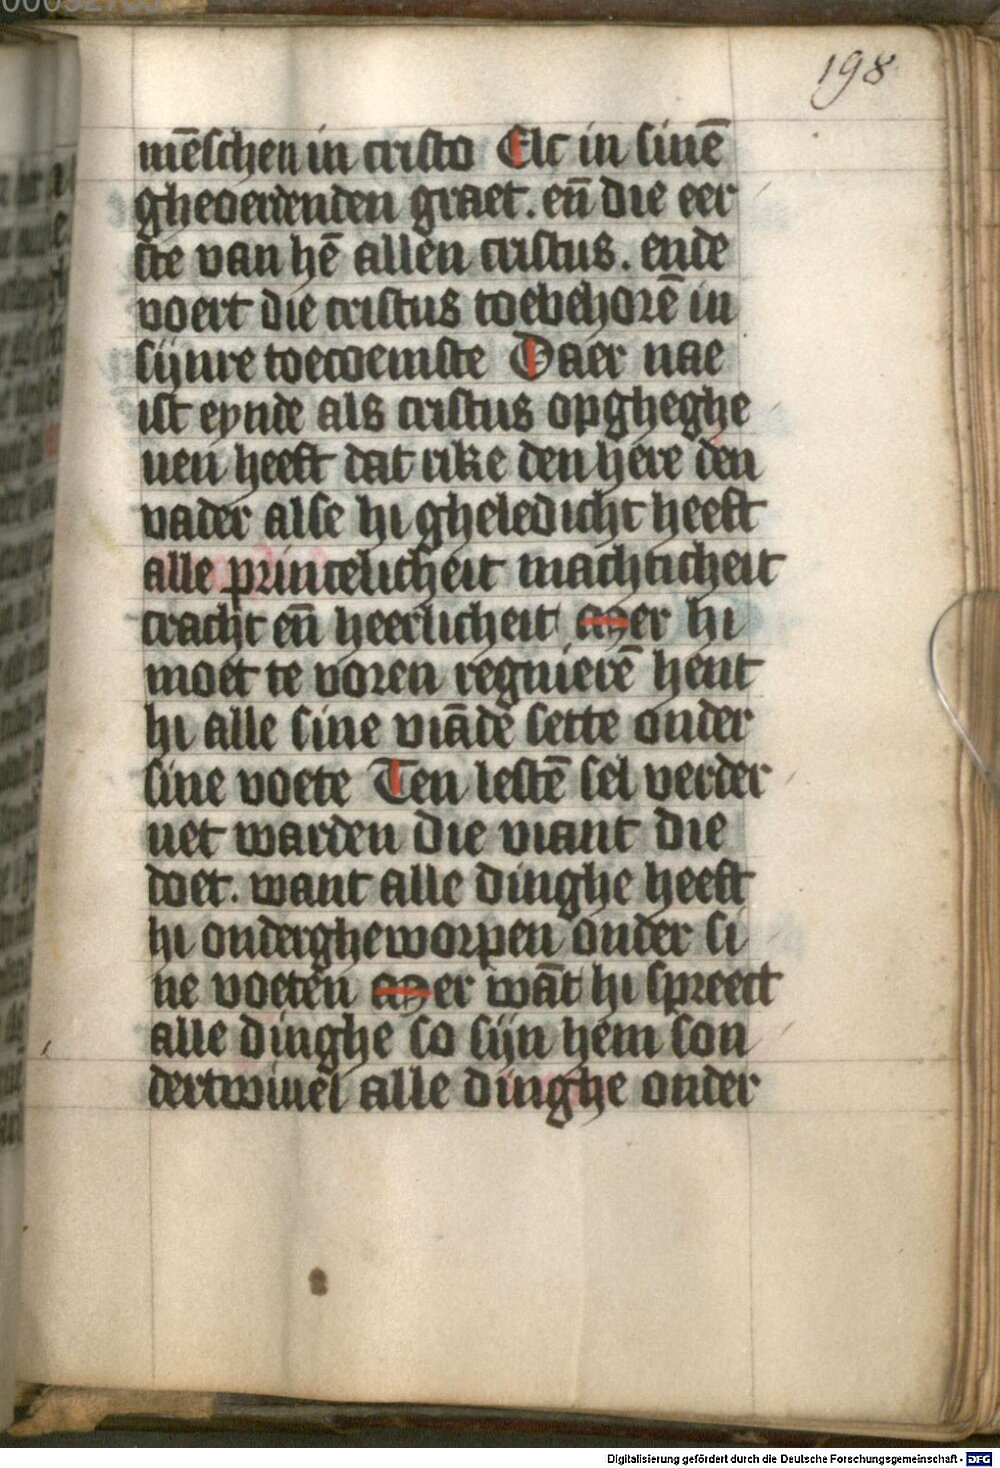 198
mēschen in cristo Elc in sinē
gheoerdenden graet. en̄ die eer
ste van hē allen cristus. ende
voert die cristus toebehorē in
sijnre toecoemste Daer nae
ist eynde als cristus opgheghe
uen heeft dat rike den here den
vader alse hi gheledicht heeft
alle princelicheit machticheit
cracht en̄ heerlicheit Mer hi
moet te voren regnierē hent
hi alle sine viādē sette onder
sine voete Ten lestē sel verder
uet warden die viant die
doet. want alle dinghe heeft
hi ondergheworpen onder si
ne voeten Mer wāt hi spreect
alle dinghe so sijn hem son
dertwiuel alle dinghe onder
Digitalisierung gefördert durch die Deutsche Forschungsgemeinschaft - DFG